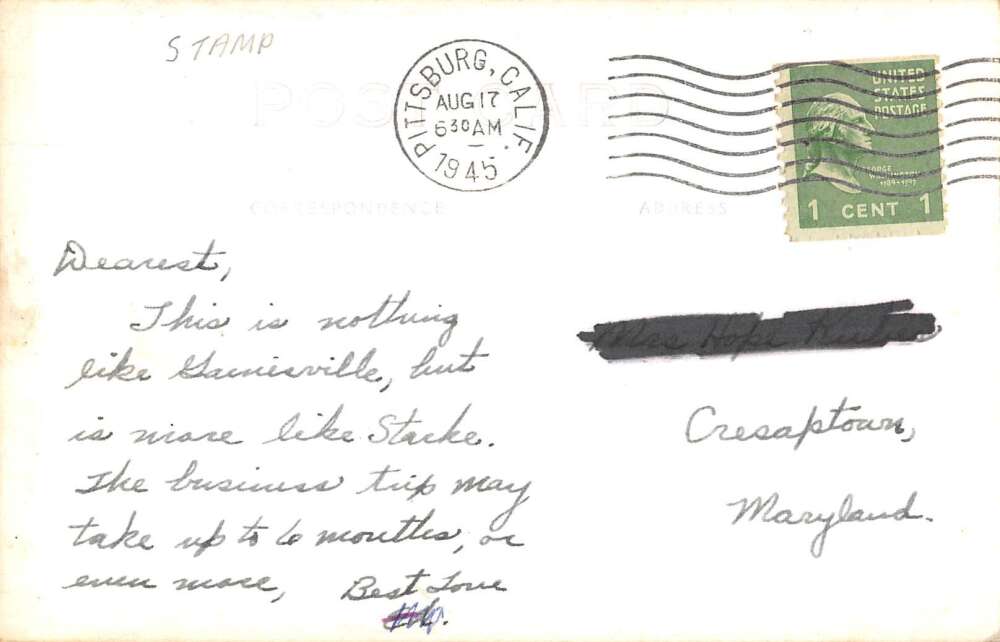 STAMP
POST CARD
PITTSBURG, CALIF.
AUG 17
6 30 AM
1945
UNITED
STATES
POSTAGE
GEORGE
WASHINGTON
1789-1797
1 CENT 1
CORRESPONDENCE
ADDRESS
Dearest,
This is nothing
like Gainesville, but
is more like Starke.
The business trip may
take up to 6 months, or
even more,
Best Love
Mrs Hope
Cresaptown,
Maryland.